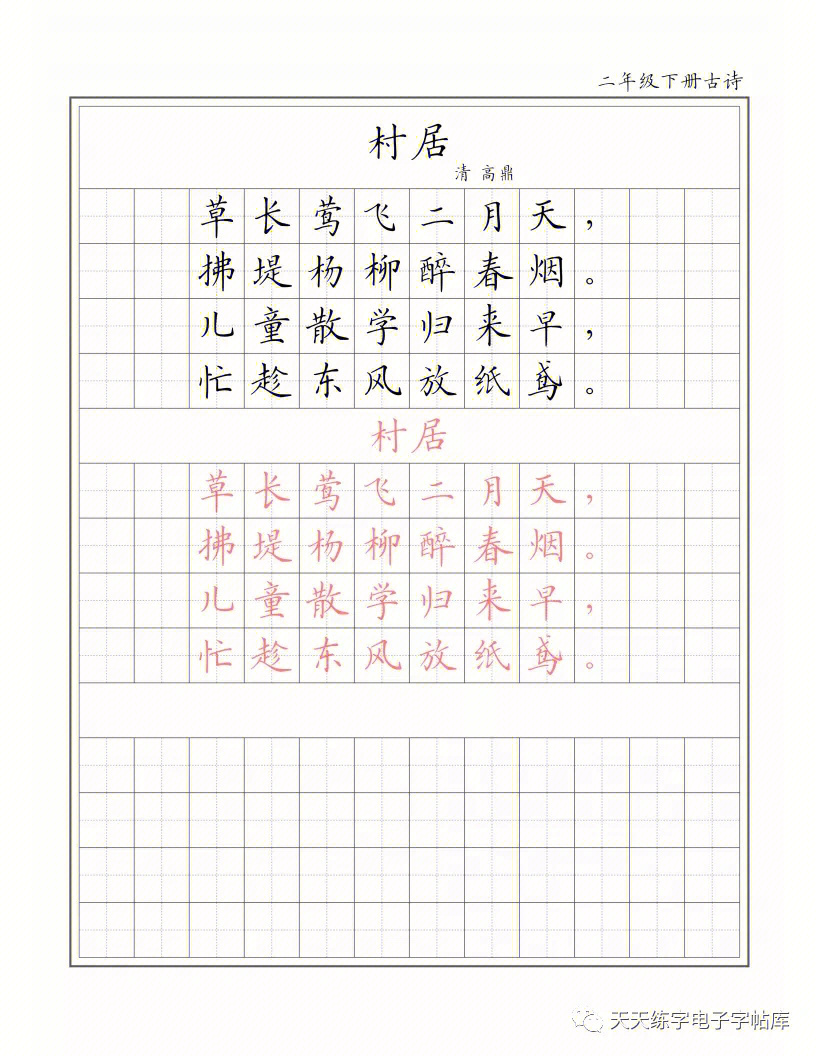 二年级下册古诗
村居
清 高鼎
草长莺飞二月天，
拂堤杨柳醉春烟。
儿童散学归来早，
忙趁东风放纸鸢。
村居
草长莺飞二月天，
拂堤杨柳醉春烟。
儿童散学归来早，
忙趁东风放纸鸢。
天天练字电子字帖库